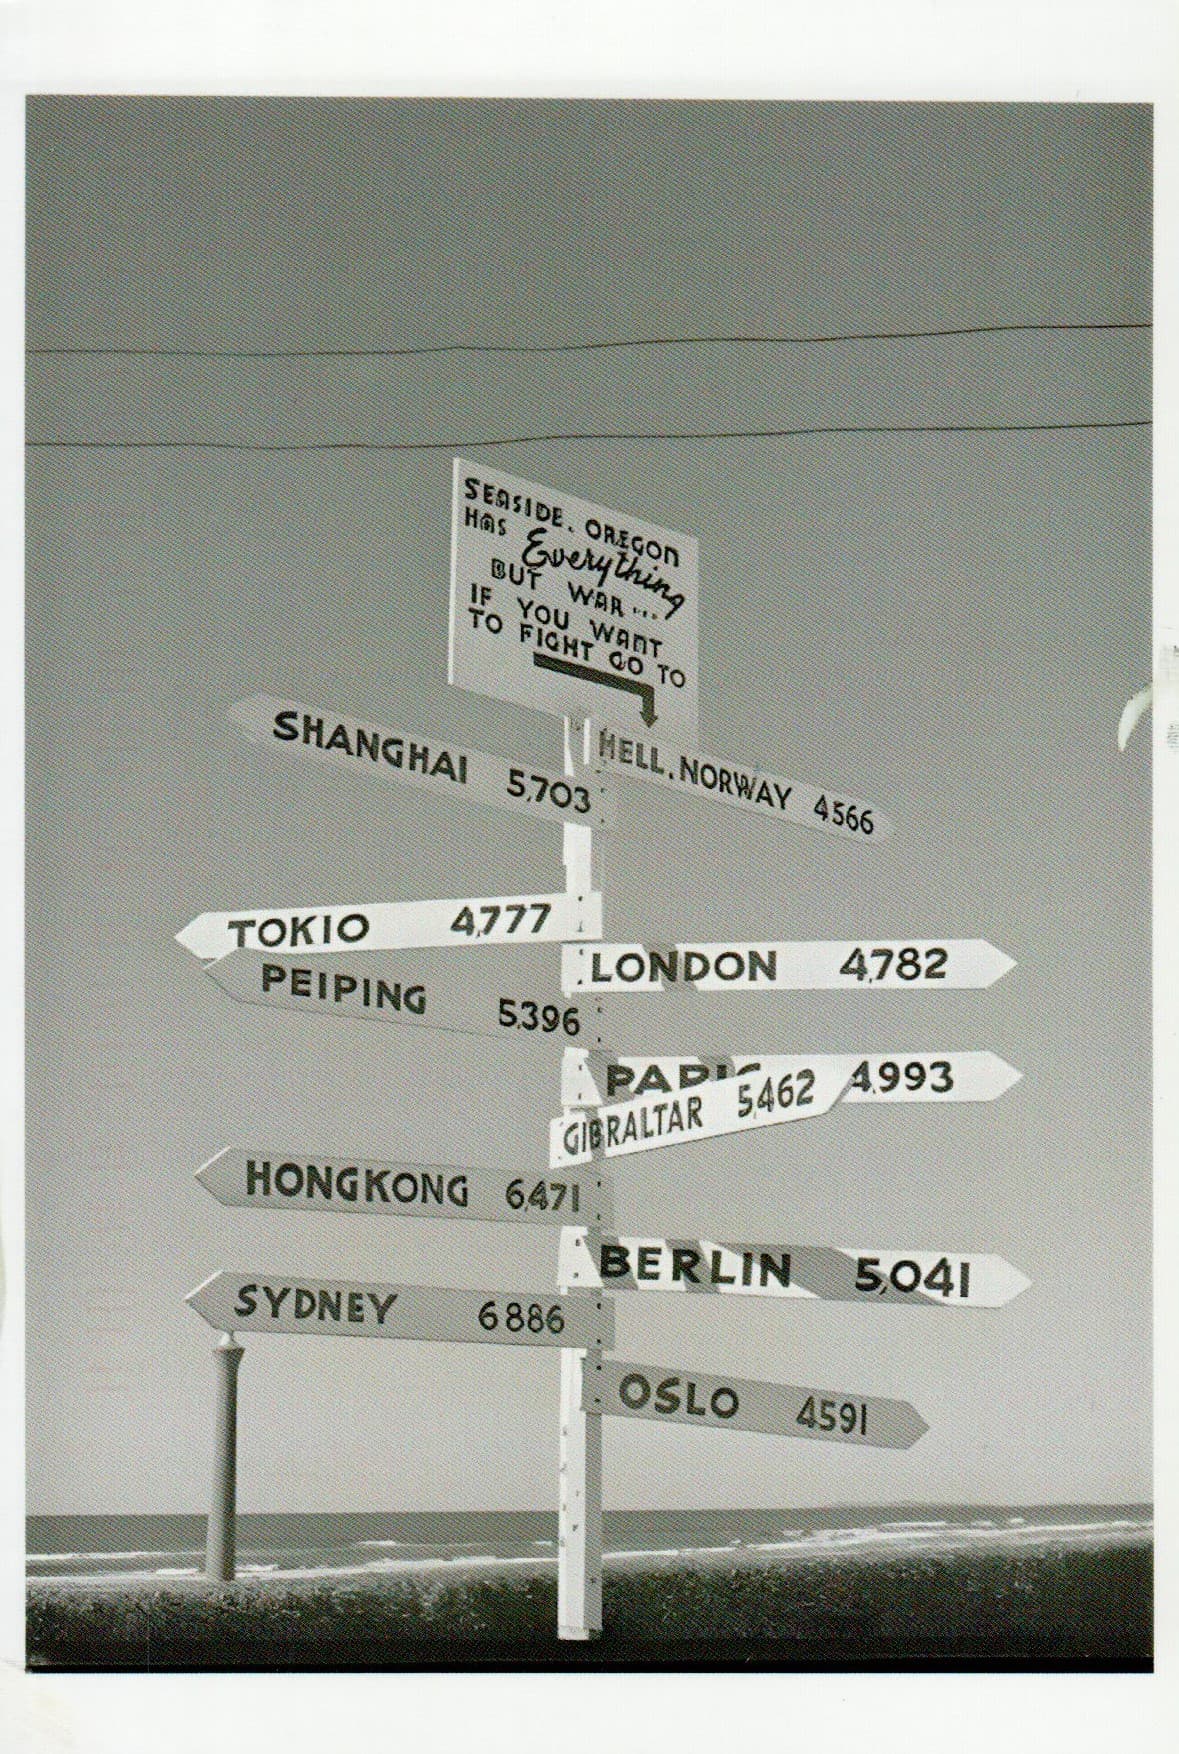 SEASIDE. OREGON
HAS Everything
BUT WAR...
IF YOU WANT
TO FIGHT GO TO
HELL. NORWAY 4566
SHANGHAI 5,703
TOKIO 4,777
LONDON 4,782
PEIPING 5,396
PARIS 4,993
GIBRALTAR 5,462
HONGKONG 6,471
BERLIN 5,041
SYDNEY 6886
OSLO 4591